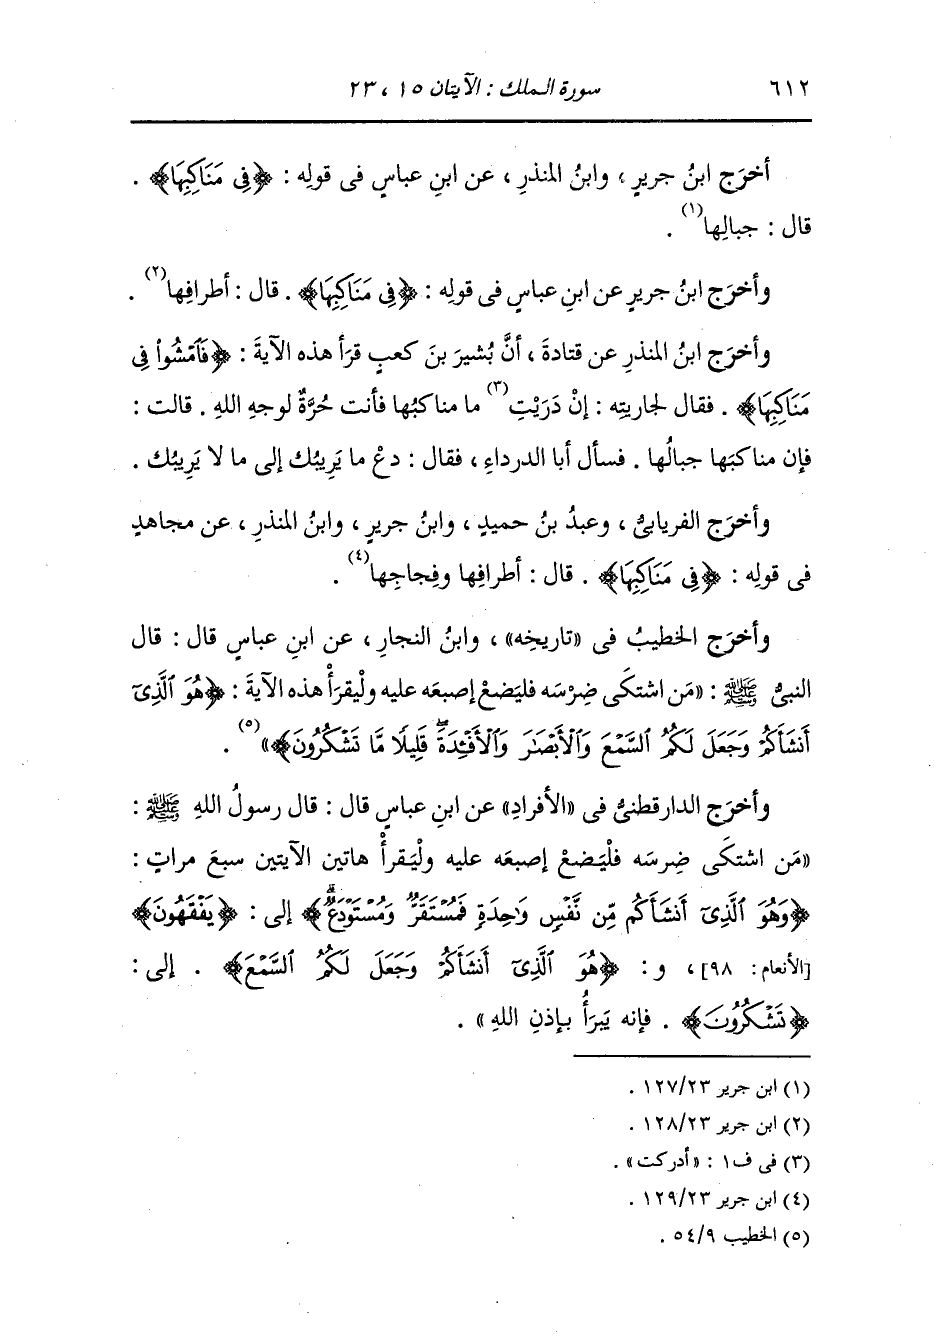 ٦١٢ سورة الملك : الآيتان ١٥ ، ٢٣
أخرَج ابنُ جريرٍ ، وابنُ المنذرِ ، عن ابنِ عباسٍ فى قولِه : ﴿فِى مَنَاكِبِهَا﴾ .
قال : جبالِها(١) .
وأخرَج ابنُ جريرٍ عن ابنِ عباسٍ فى قولِه : ﴿فِى مَنَاكِبِهَا﴾ . قال : أطرافِها(٢) .
وأخرَج ابنُ المنذرِ عن قتادةَ ، أنَّ بُشيرَ بنَ كعبٍ قرَأ هذه الآيةَ : ﴿فَٱمۡشُواْ فِى
مَنَاكِبِهَا﴾ . فقال لجاريتِه : إنْ دَرَيْتِ(٣) ما مناكبُها فأنت حُرَّةٌ لوجهِ اللهِ . قالت :
فإن مناكبَها جبالُها . فسأل أبا الدرداءِ ، فقال : دعْ ما يَرِيبُك إلى ما لا يَرِيبُك .
وأخرَج الفريابىُّ ، وعبدُ بنُ حميدٍ ، وابنُ جريرٍ ، وابنُ المنذرِ ، عن مجاهدٍ
فى قولِه : ﴿فِى مَنَاكِبِهَا﴾ . قال : أطرافِها وفِجاجِها(٤) .
وأخرَج الخطيبُ فى «تاريخِه» ، وابنُ النجارِ ، عن ابنِ عباسٍ قال : قال
النبىُّ ﷺ : «مَن اشتكَى ضِرْسَه فليَضعْ إصبعَه عليه ولْيقرَأْ هذه الآيةَ : ﴿هُوَ ٱلَّذِىٓ
أَنشَأَكُمۡ وَجَعَلَ لَكُمُ ٱلسَّمۡعَ وَٱلۡأَبۡصَٰرَ وَٱلۡأَفۡـِٔدَةَۖ قَلِيلًا مَّا تَشۡكُرُونَ﴾»(٥) .
وأخرَج الدارقطنىُّ فى «الأفرادِ» عن ابنِ عباسٍ قال : قال رسولُ اللهِ ﷺ :
«مَن اشتكَى ضِرسَه فلْيَضعْ إصبعَه عليه ولْيَقرأْ هاتين الآيتين سبعَ مراتٍ :
﴿وَهُوَ ٱلَّذِىٓ أَنشَأَكُم مِّن نَّفۡسٖ وَٰحِدَةٖ فَمُسۡتَقَرّٞ وَمُسۡتَوۡدَعٞۗ﴾ إلى : ﴿يَفۡقَهُونَ﴾
[الأنعام: ٩٨] ، و : ﴿هُوَ ٱلَّذِىٓ أَنشَأَكُمۡ وَجَعَلَ لَكُمُ ٱلسَّمۡعَ﴾ . إلى :
﴿تَشۡكُرُونَ﴾ . فإنه يَبرَأُ بإذنِ اللهِ» .
(١) ابن جرير ١٢٧/٢٣ .
(٢) ابن جرير ١٢٨/٢٣ .
(٣) فى ف١ : «أدركت» .
(٤) ابن جرير ١٢٩/٢٣ .
(٥) الخطيب ٥٤/٩ .